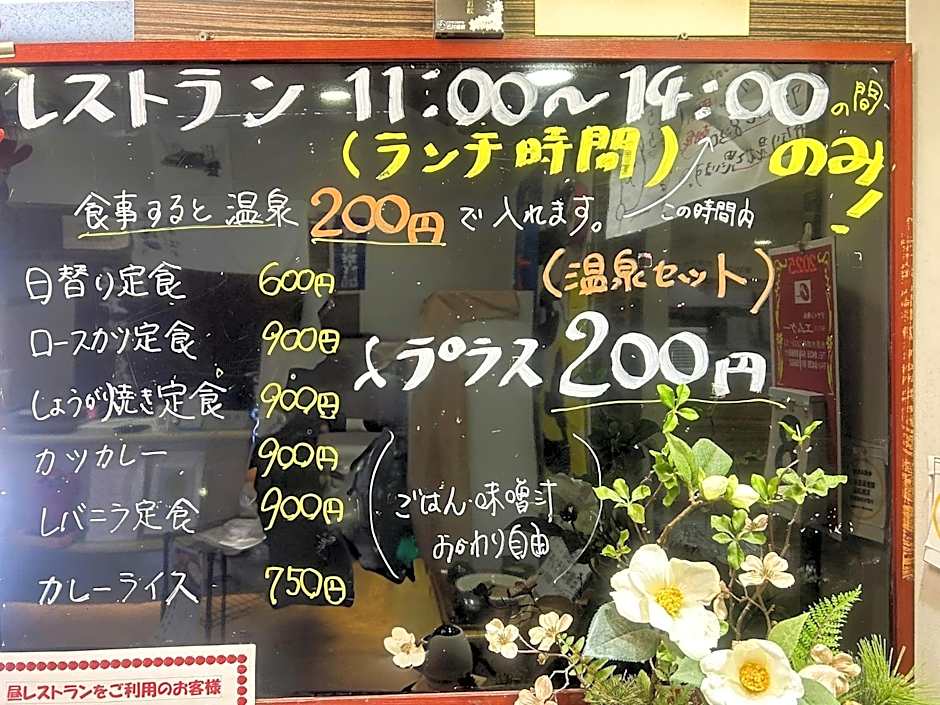 レストラン 11:00〜14:00の間
(ランチ時間) のみ!
食事すると温泉200円で入れます。
この時間内
日替り定食 600円
(温泉セット)
ロースカツ定食 900円
プラス200円
しょうが焼き定食 900円
カツカレー 900円
レバニラ定食 900円
(ごはん・味噌汁
おかわり自由)
カレーライス 750円
昼レストランをご利用のお客様
2025
エムケー